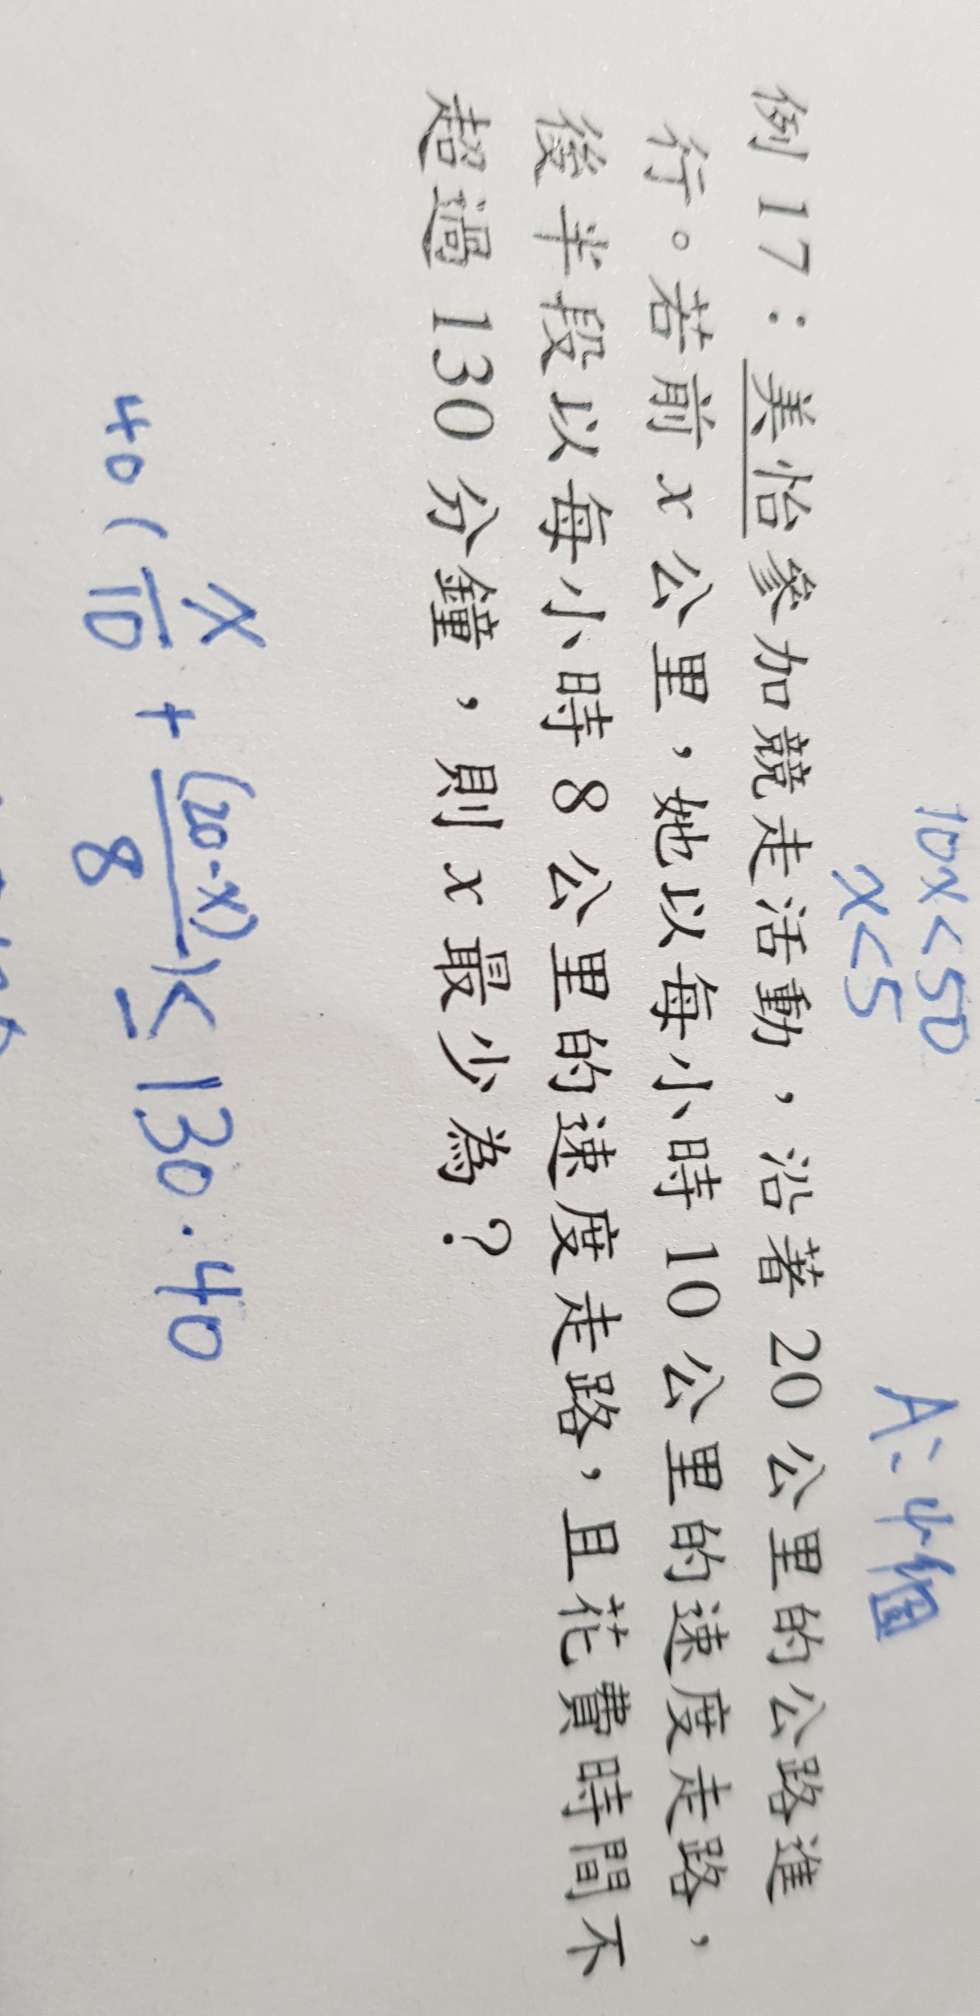 10x<50
x<5
A:4個
例 17：美怡參加競走活動，沿著 20 公里的公路進
行。若前 x 公里，她以每小時 10 公里的速度走路，
後半段以每小時 8 公里的速度走路，且花費時間不
超過 130 分鐘，則 x 最少為？
40(x/10+(20-x)/8)≤130·40